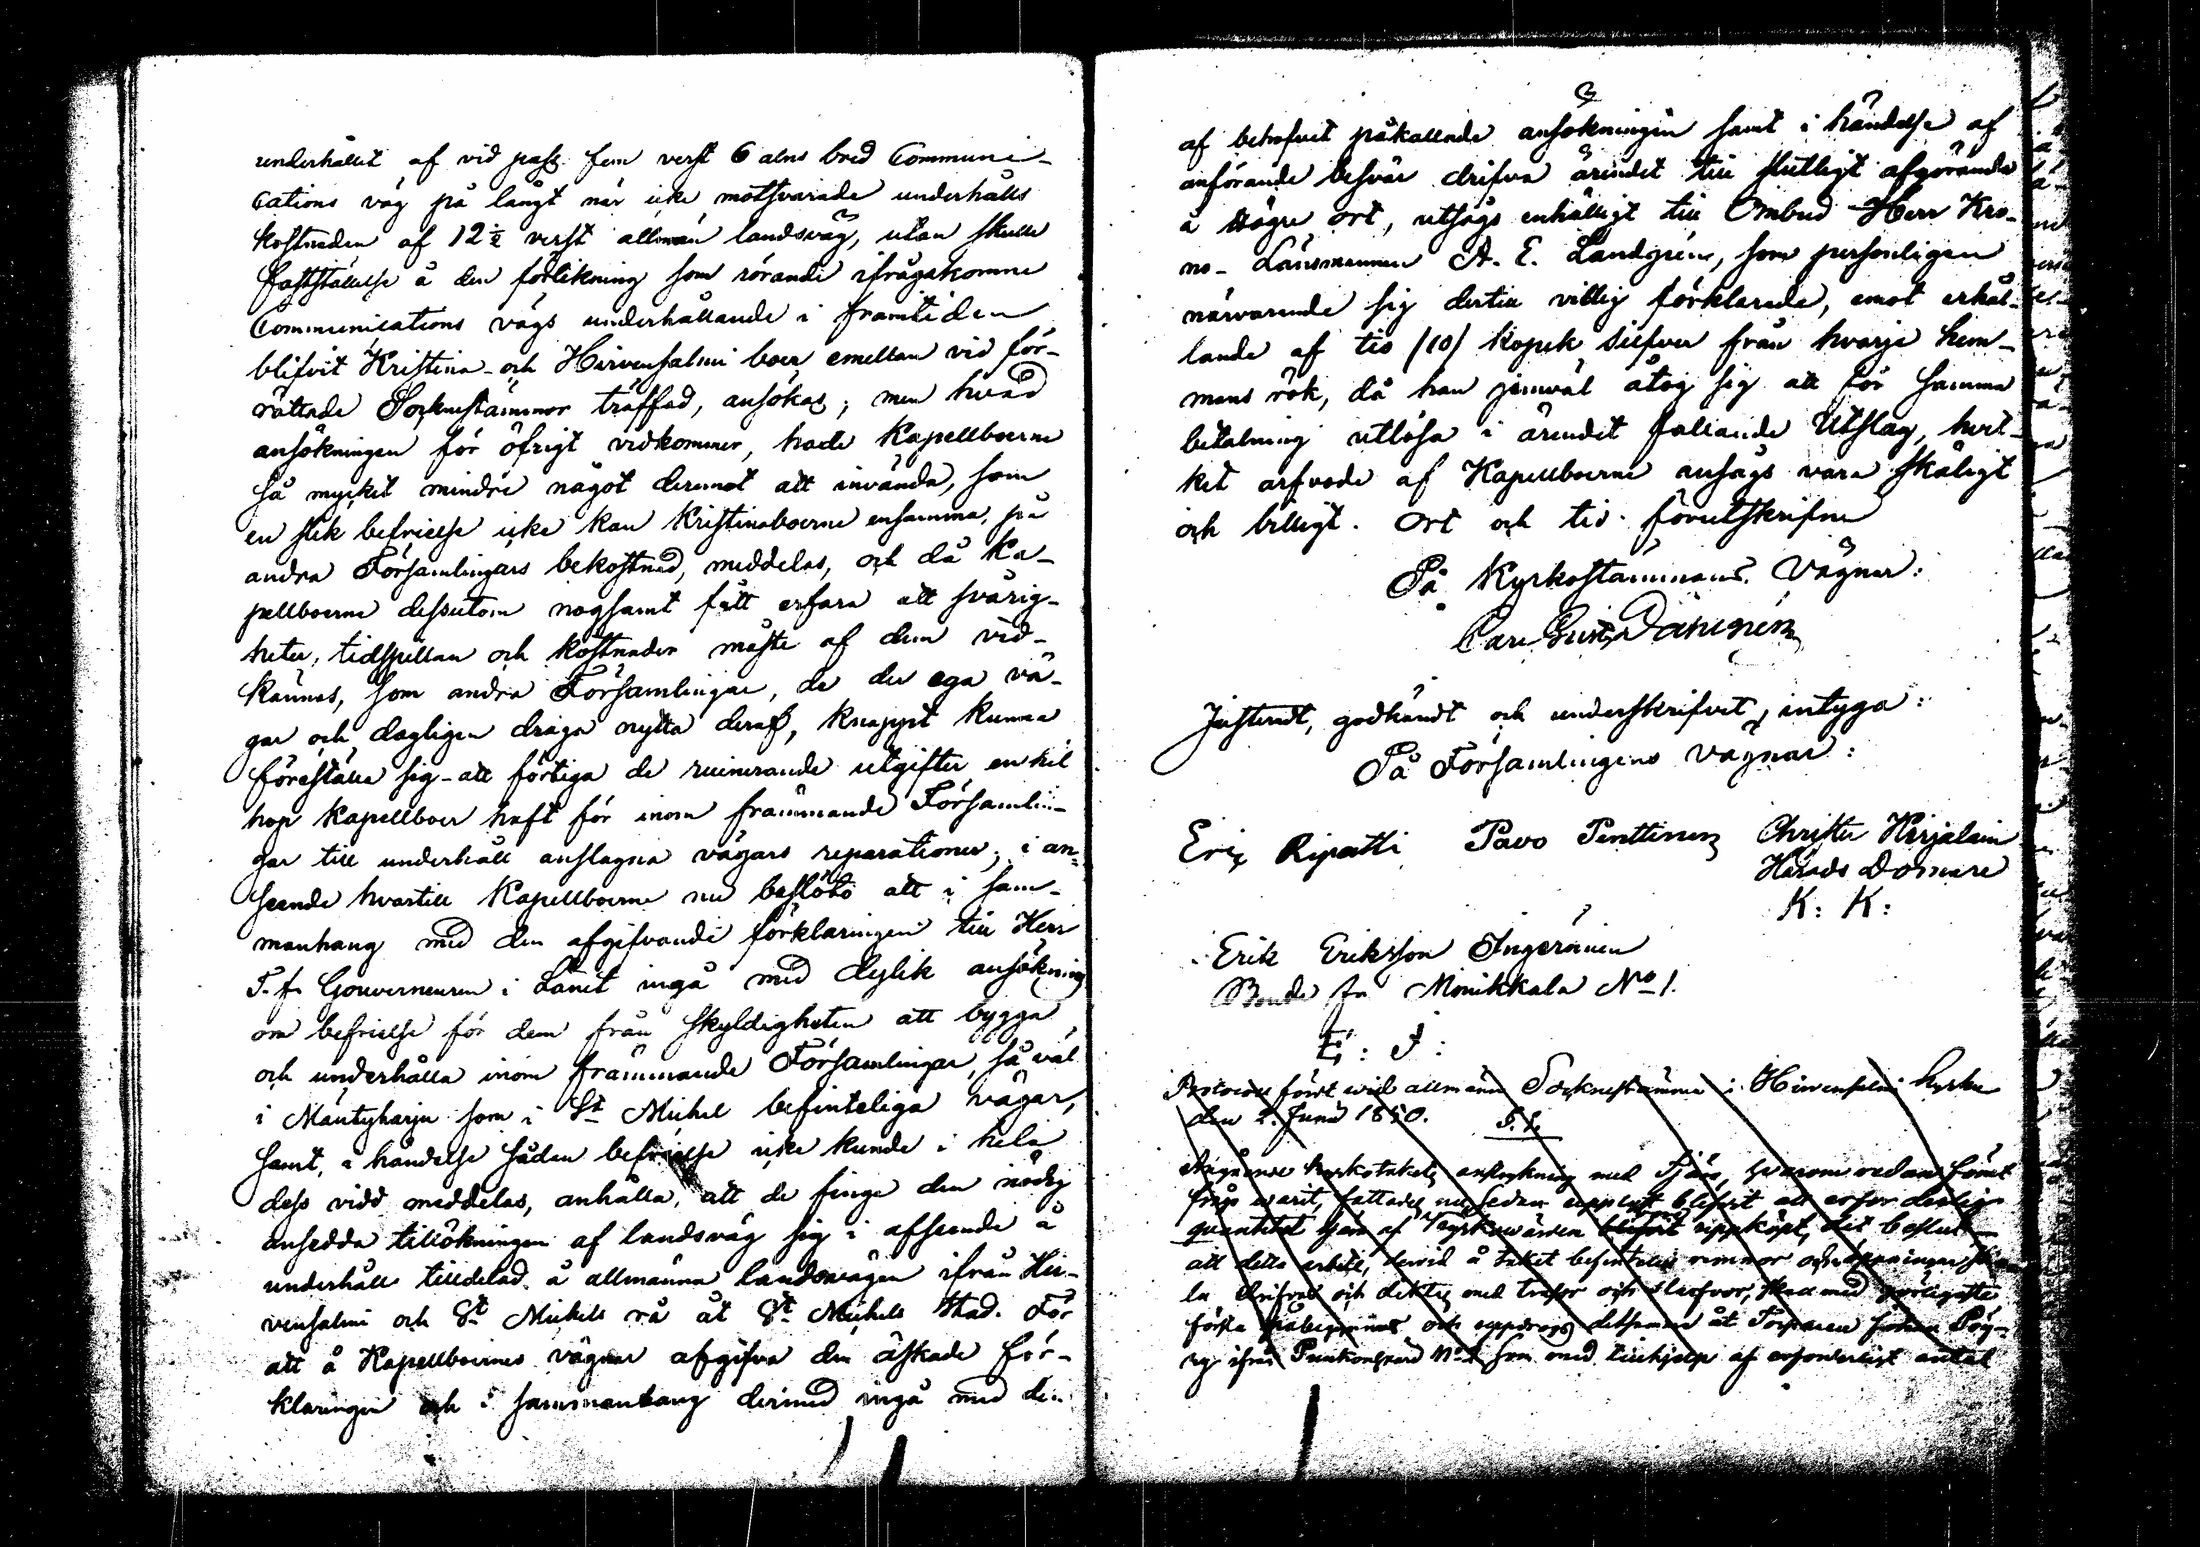 underhållet af vid pass fem verst 6 alns bred Communi-
cations väg på långt när icke motsvarade underhålls
kostnaden af 12½ verst allmän landsväg, utan skulle
fastställelse å den förlikning som rörande ifrågakomne
Communications vägs underhållande i framtiden
blifvit Kristina- och Hirvensalmi boer emellan vid för-
rättade Sockenstämmor träffad, ansökas; men hvad
ansökningen för öfrigt vidkommer, hade Kapellboerne
så mycket mindre något deremot att invända, som
en slik befrielse icke kan Kristinaboerne ensamma, på
andra Församlingars bekostnad, meddelas, och då Ka-
pellboerne dessutom nogsamt fått erfara att svårig-
heter, tidspillan och kostnader måste af dem vid-
kännas, som andra Församlingar, de der ega vä-
gar och dagligen draga nytta deraf, knappt kunna
föreställa sig - att förtiga de ruinerande utgifter en hel
hop Kapellboer haft för inom främmande Församl-
gar till underhåll anslagna vägars reparationer; i an-
seende hvartill Kapellboerne nu beslöto att i sam-
manhang med den afgifvande förklaringen till Herr
T. f. Gouverneuren i Länet ingå med dylik ansökning
om befrielse för dem från skyldigheten att bygga
och underhålla inom främmande Församlingar, så väl
i Mäntyharju som i St Michel befinteliga vägar,
samt, i händelse sådan befrielse icke kunde i hela
dess vidd meddelas, anhålla, att de finge den nödig
ansedda tillökningen af landsväg sig i afseende å
underhåll tilldelad å allmänna landsvägen ifrån Hir-
vensalmi och St Michels rå åt St Michels Stad. För
att å Kapellboernes vägnar afgifva den äskade för-
klaringen och i sammanhang dermed ingå med den
af behofvet påkallade ansökningen samt i händelse af
anförande besvär drifva ärendet till slutligt afgörande
å högre ort, utsågs enhälligt till Ombud Herr Kro-
no-Länsmannen A. E. Landgrén, som personligen
närvarande sig dertill villig förklarade, emot erhål-
lande af tio /10/ kopek silfver från hvarje hem-
mans rök, då han jemväl åtog sig att för samma
betalning utlösa i ärendet fallande Utslag, hvil-
ket arfvode af Kapellboerne ansågs vara skäligt
och billigt. Ort och tid förutskrifne
På Kyrkostämmans Vägnar:
Carl Gust
Justeradt, godkändt och underskrifvet, intyga:
På Församlingens vägnar:
Eric Ripatti Pavo Penttinen Christer Kirjalain
Härads Domare
K: K:
Erik Eriksson Ingeroinen
Bonde fn Monikkala No 1.
E: I:
Protocoll fördt wid allmänn Sockenstämma i Hirvensalmi kyrka
den 2 Junii 1850. §. 1.
Angående kyrkotakets anstrykning med Tjära, hwarom redan förut
fråga warit, fattades nu, sedan upplyst blifvit att erforderlig
quantitet tjära af Kyrkowärden blifvit uppköpt, det beslut
att detta arbete, hwid å taket befintelige remnor och öppningar sko-
la drifvas och dettes med trasor och, skall med görligaste
första påbegynnas och uppdrogs detsamma åt Torparen Johan Pög-
ry ifrån Puukonsaari No 2 som med tillhjelp af erforderligt antal